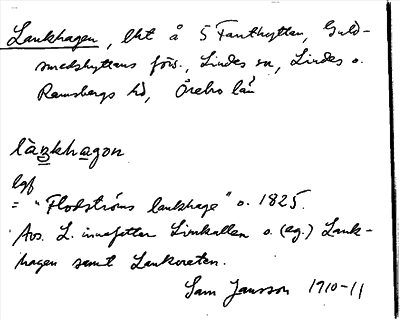 Lankhagen, lht å 5 Fanthyttan, Guld-
smedshyttans förs., Lindes sn, Lindes o.
Ramsbergs hd, Örebro län
làŋkhagon
lgf
= "Flodströms lankhage" o. 1825.
Avs. L. innefattar Limkallen o. (eg.) Lank-
hagen samt Lankoreten.
Sam Jansson 1910-11